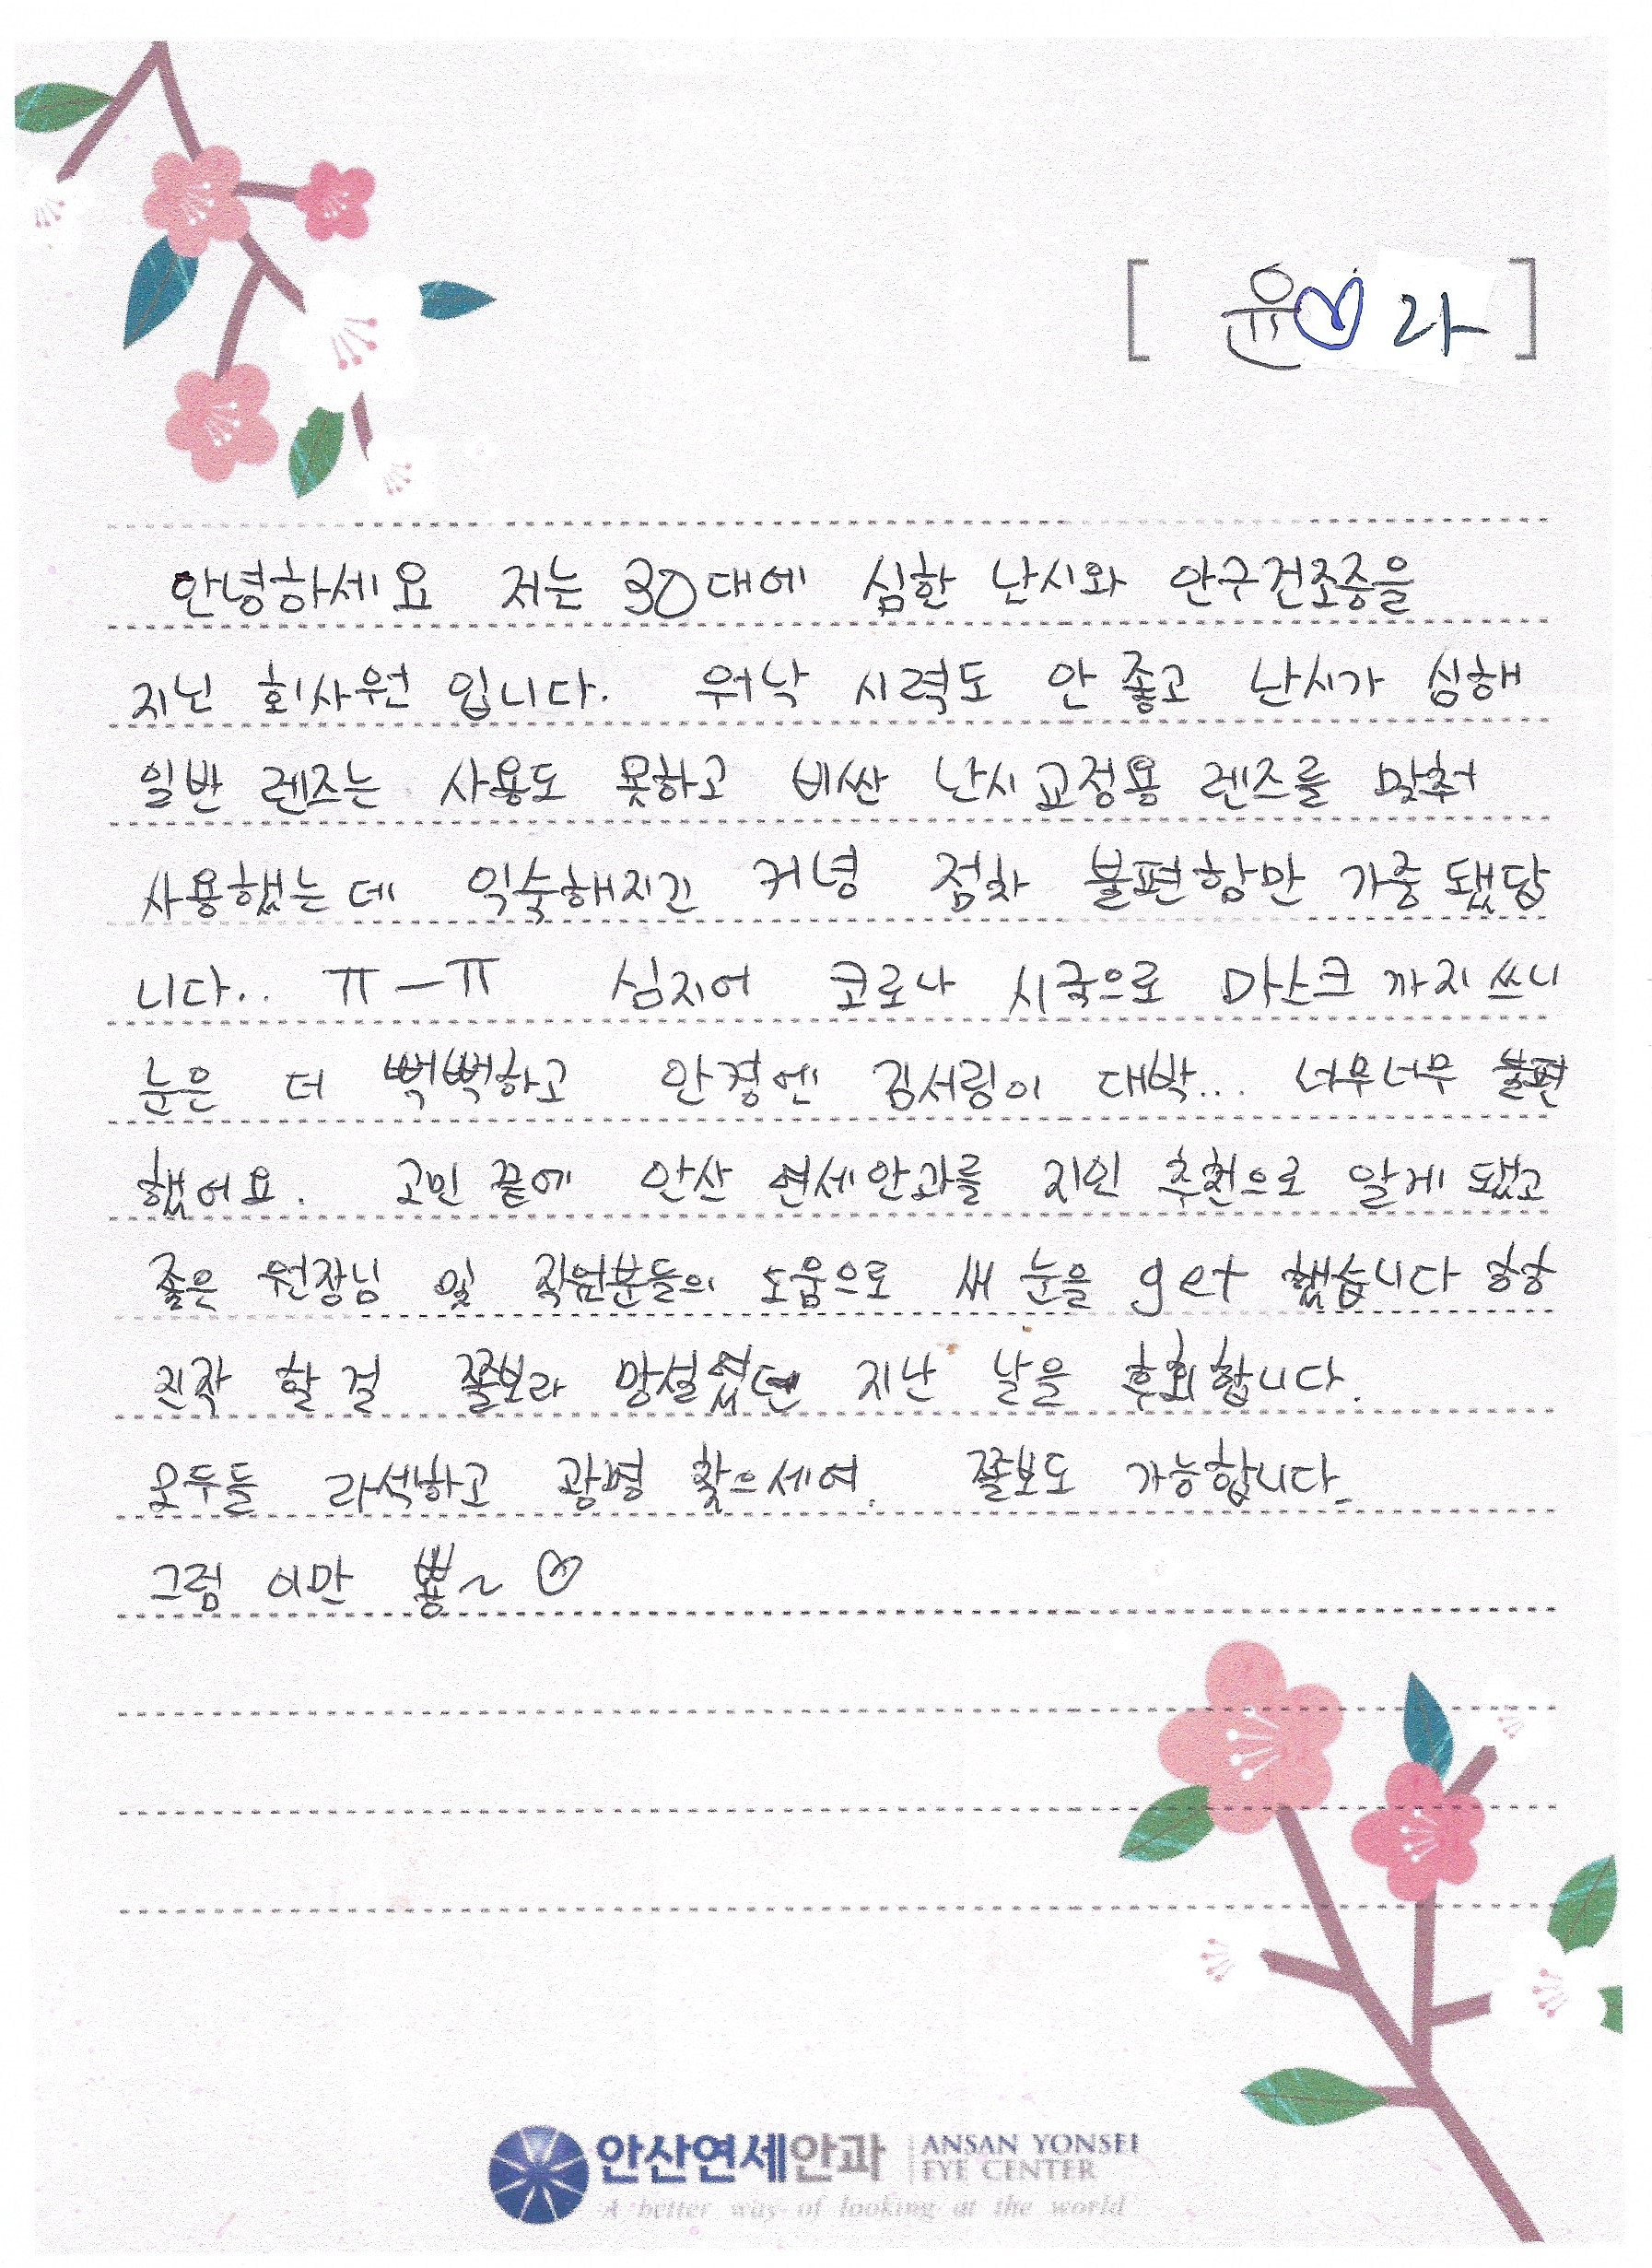 [ 윤♡라 ]
안녕하세요 저는 30대에 심한 난시와 안구건조증을
지닌 회사원 입니다. 워낙 시력도 안 좋고 난시가 심해
일반 렌즈는 사용도 못하고 비싼 난시교정용 렌즈를 맞춰
사용했는데 익숙해지긴 커녕 점차 불편함만 가중됐답
니다.. ㅠ-ㅠ 심지어 코로나 시국으로 마스크까지 쓰니
눈은 더 뻑뻑하고 안경엔 김서림이 대박... 너무너무 불편
했어요. 고민 끝에 안산 연세안과를 지인 추천으로 알게 됐고
좋은 원장님 및 직원분들의 도움으로 새 눈을 get 했습니다 핳핳
진작 할 걸 쫄보라 망설였던 지난 날을 후회합니다.
모두들 라섹하고 광명 찾으세여. 쫄보도 가능합니다.
그럼 이만 뿅~ ♡
안산연세안과 ANSAN YONSEI
EYE CENTER
A better way of looking at the world